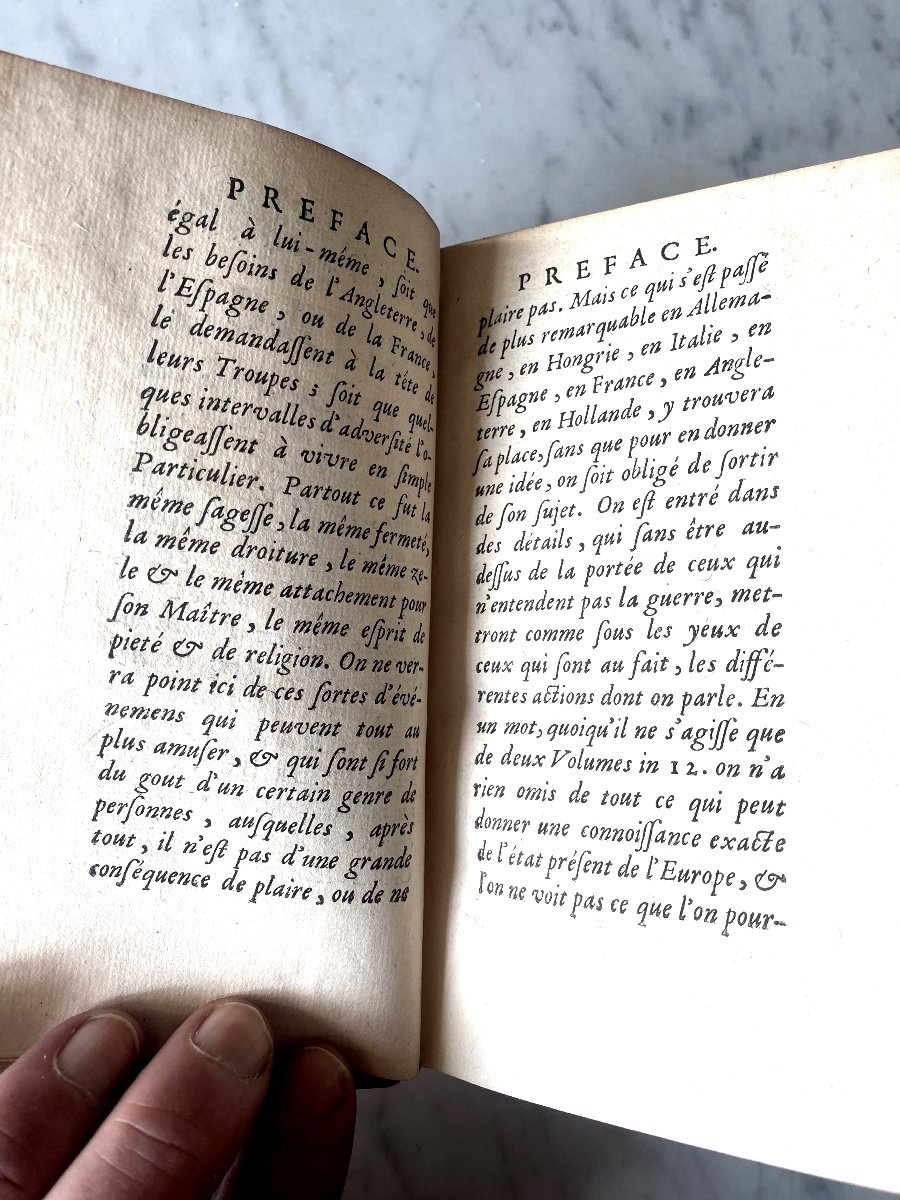 PREFACE.
égal à lui-même, ſoit que
les beſoins de l'Angleterre, de
l'Eſpagne, ou de la France,
le demandaſſent à la tête de
leurs Troupes; ſoit que quel-
ques intervalles d'adverſité l'o-
bligeaſſent à vivre en ſimple
Particulier. Partout ce fut la
même ſageſſe, la même fermeté,
la même droiture, le même ze-
le & le même attachement pour
ſon Maître, le même eſprit de
pieté & de religion. On ne ver-
ra point ici de ces ſortes d'évé-
nemens qui peuvent tout au
plus amuſer, & qui ſont ſi fort
du gout d'un certain genre de
perſonnes, auſquelles, après
tout, il n'eſt pas d'une grande
conſéquence de plaire, ou de ne
PREFACE.
plaire pas. Mais ce qui s'eſt paſſé
de plus remarquable en Allema-
gne, en Hongrie, en Italie, en
Eſpagne, en France, en Angle-
terre, en Hollande, y trouvera
ſa place, ſans que pour en donner
une idée, on ſoit obligé de ſortir
de ſon ſujet. On eſt entré dans
des détails, qui ſans être au-
deſſus de la portée de ceux qui
n'entendent pas la guerre, met-
tront comme ſous les yeux de
ceux qui ſont au fait, les diffé-
rentes actions dont on parle. En
un mot, quoiqu'il ne s'agiſſe que
de deux Volumes in 12. on n'a
rien omis de tout ce qui peut
donner une connoiſſance exacte
de l'état préſent de l'Europe, &
l'on ne voit pas ce que l'on pour-